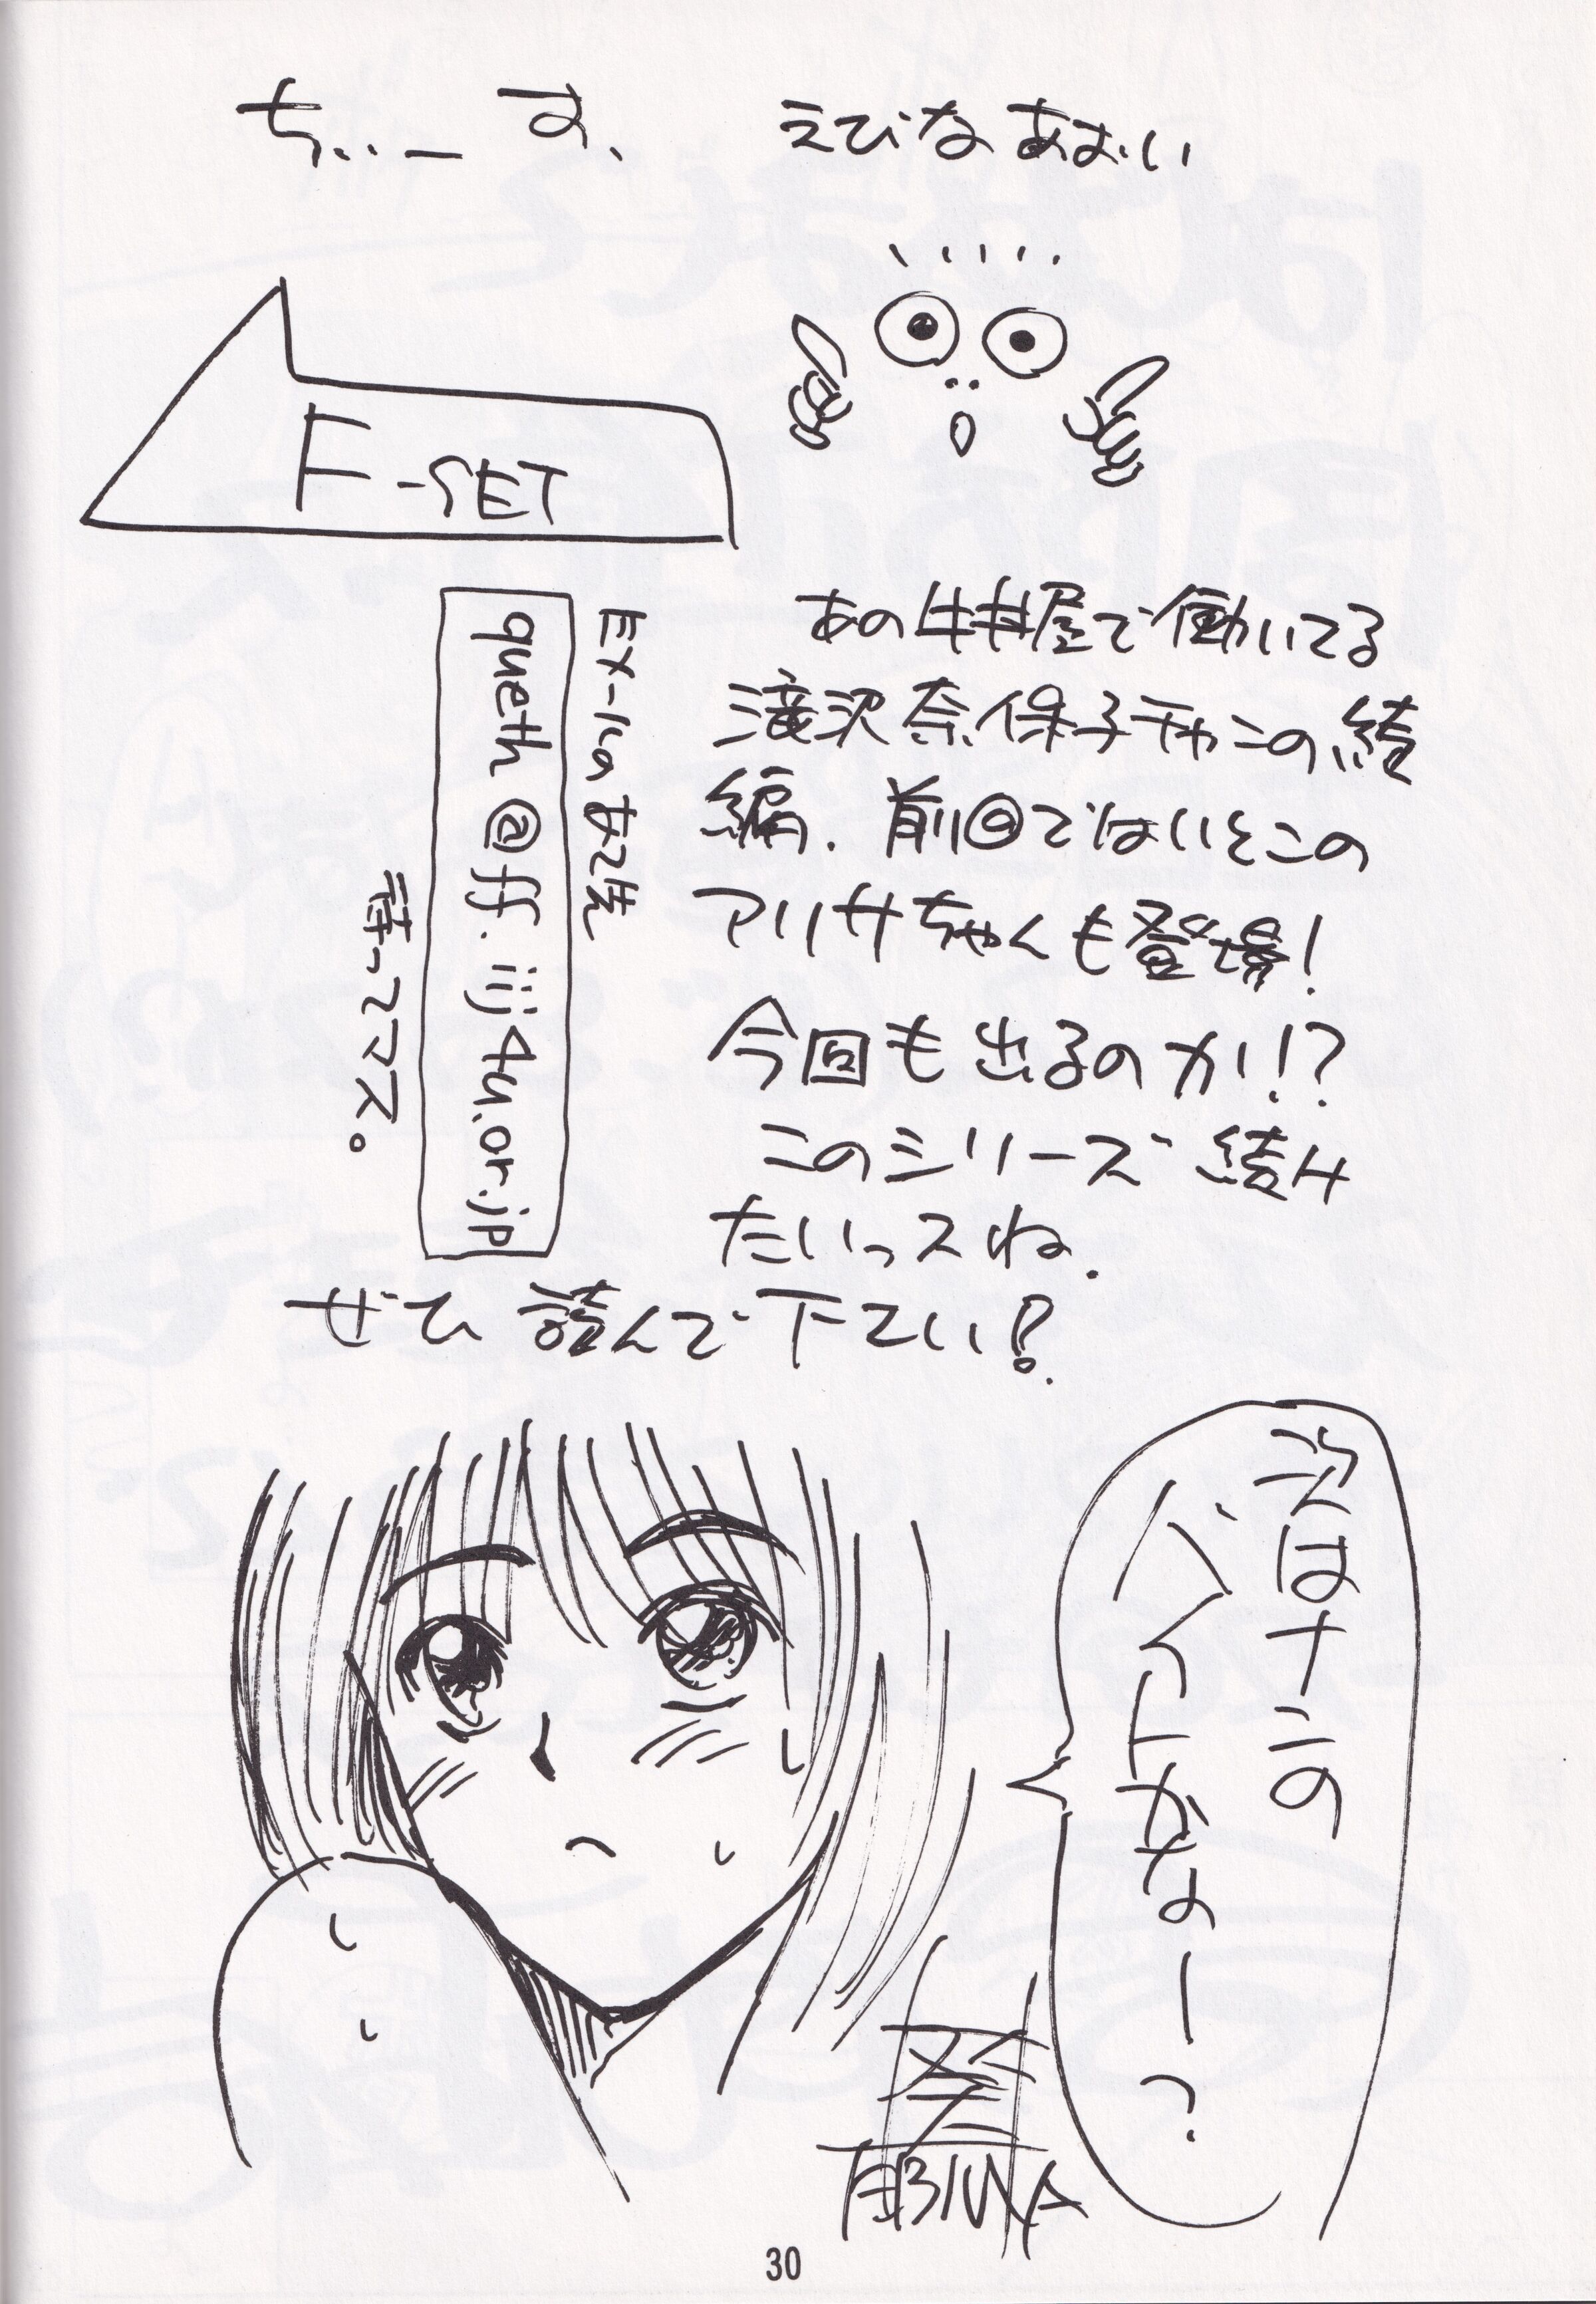 ちぃーす、 えびなあおい
あの牛丼屋で働いてる
滝沢奈保子チャンの続
編. 前回ではいとこの
アリサちゃんも登場!
今回も出るのか!!?
このシリーズ続け
たいっスね.
ぜひ読んで下さい!
Eメールのあて先
queth@ff.iij4u.or.jp
待ってマス。
次はナニの
バイトかなー?
葵
EBINA
30